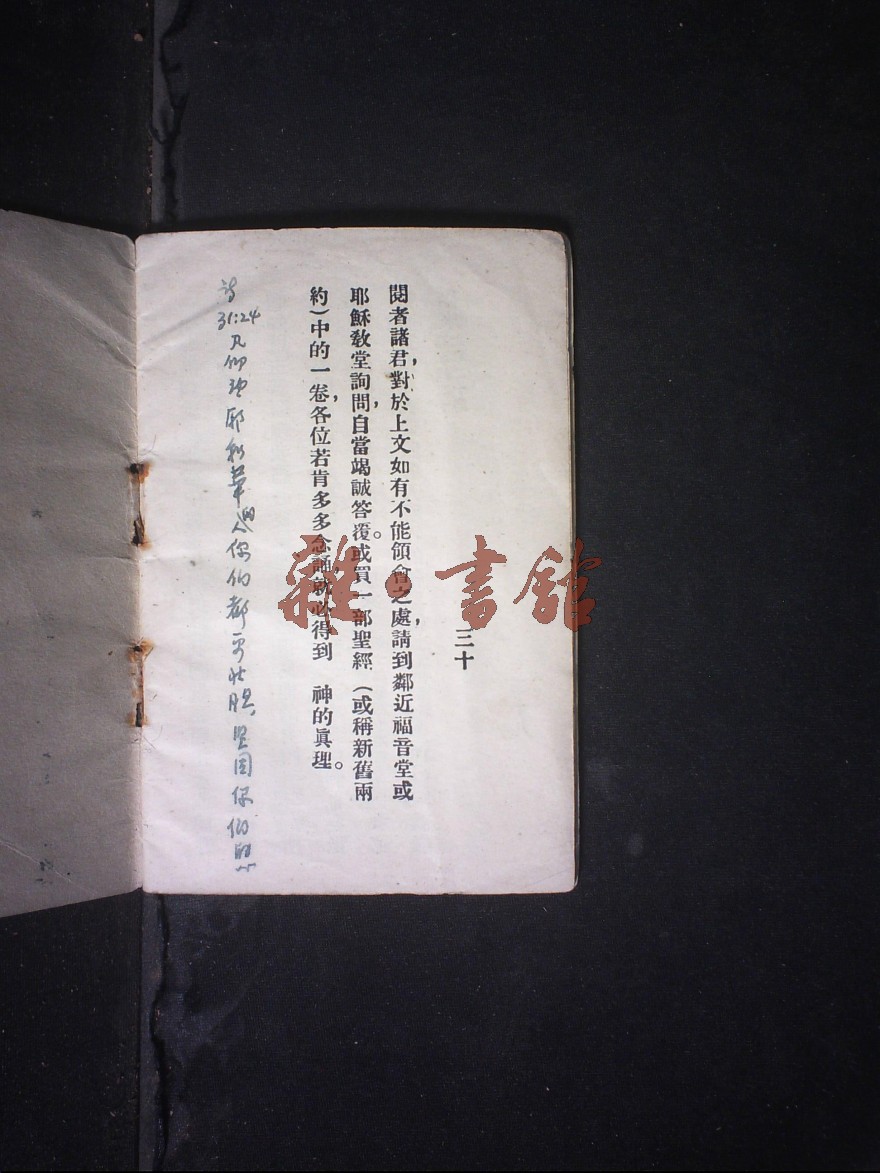 三十
閱者諸君，對於上文如有不能領會之處，請到鄰近福音堂或
耶穌教堂詢問，自當竭誠答覆。或買一部聖經（或稱新舊兩
約）中的一卷，各位若肯多多念誦，就必得到　神的眞理。
詩
31:24
凡仰望耶和華的人你们都要壮胆，坚固你们的心
雜·書館